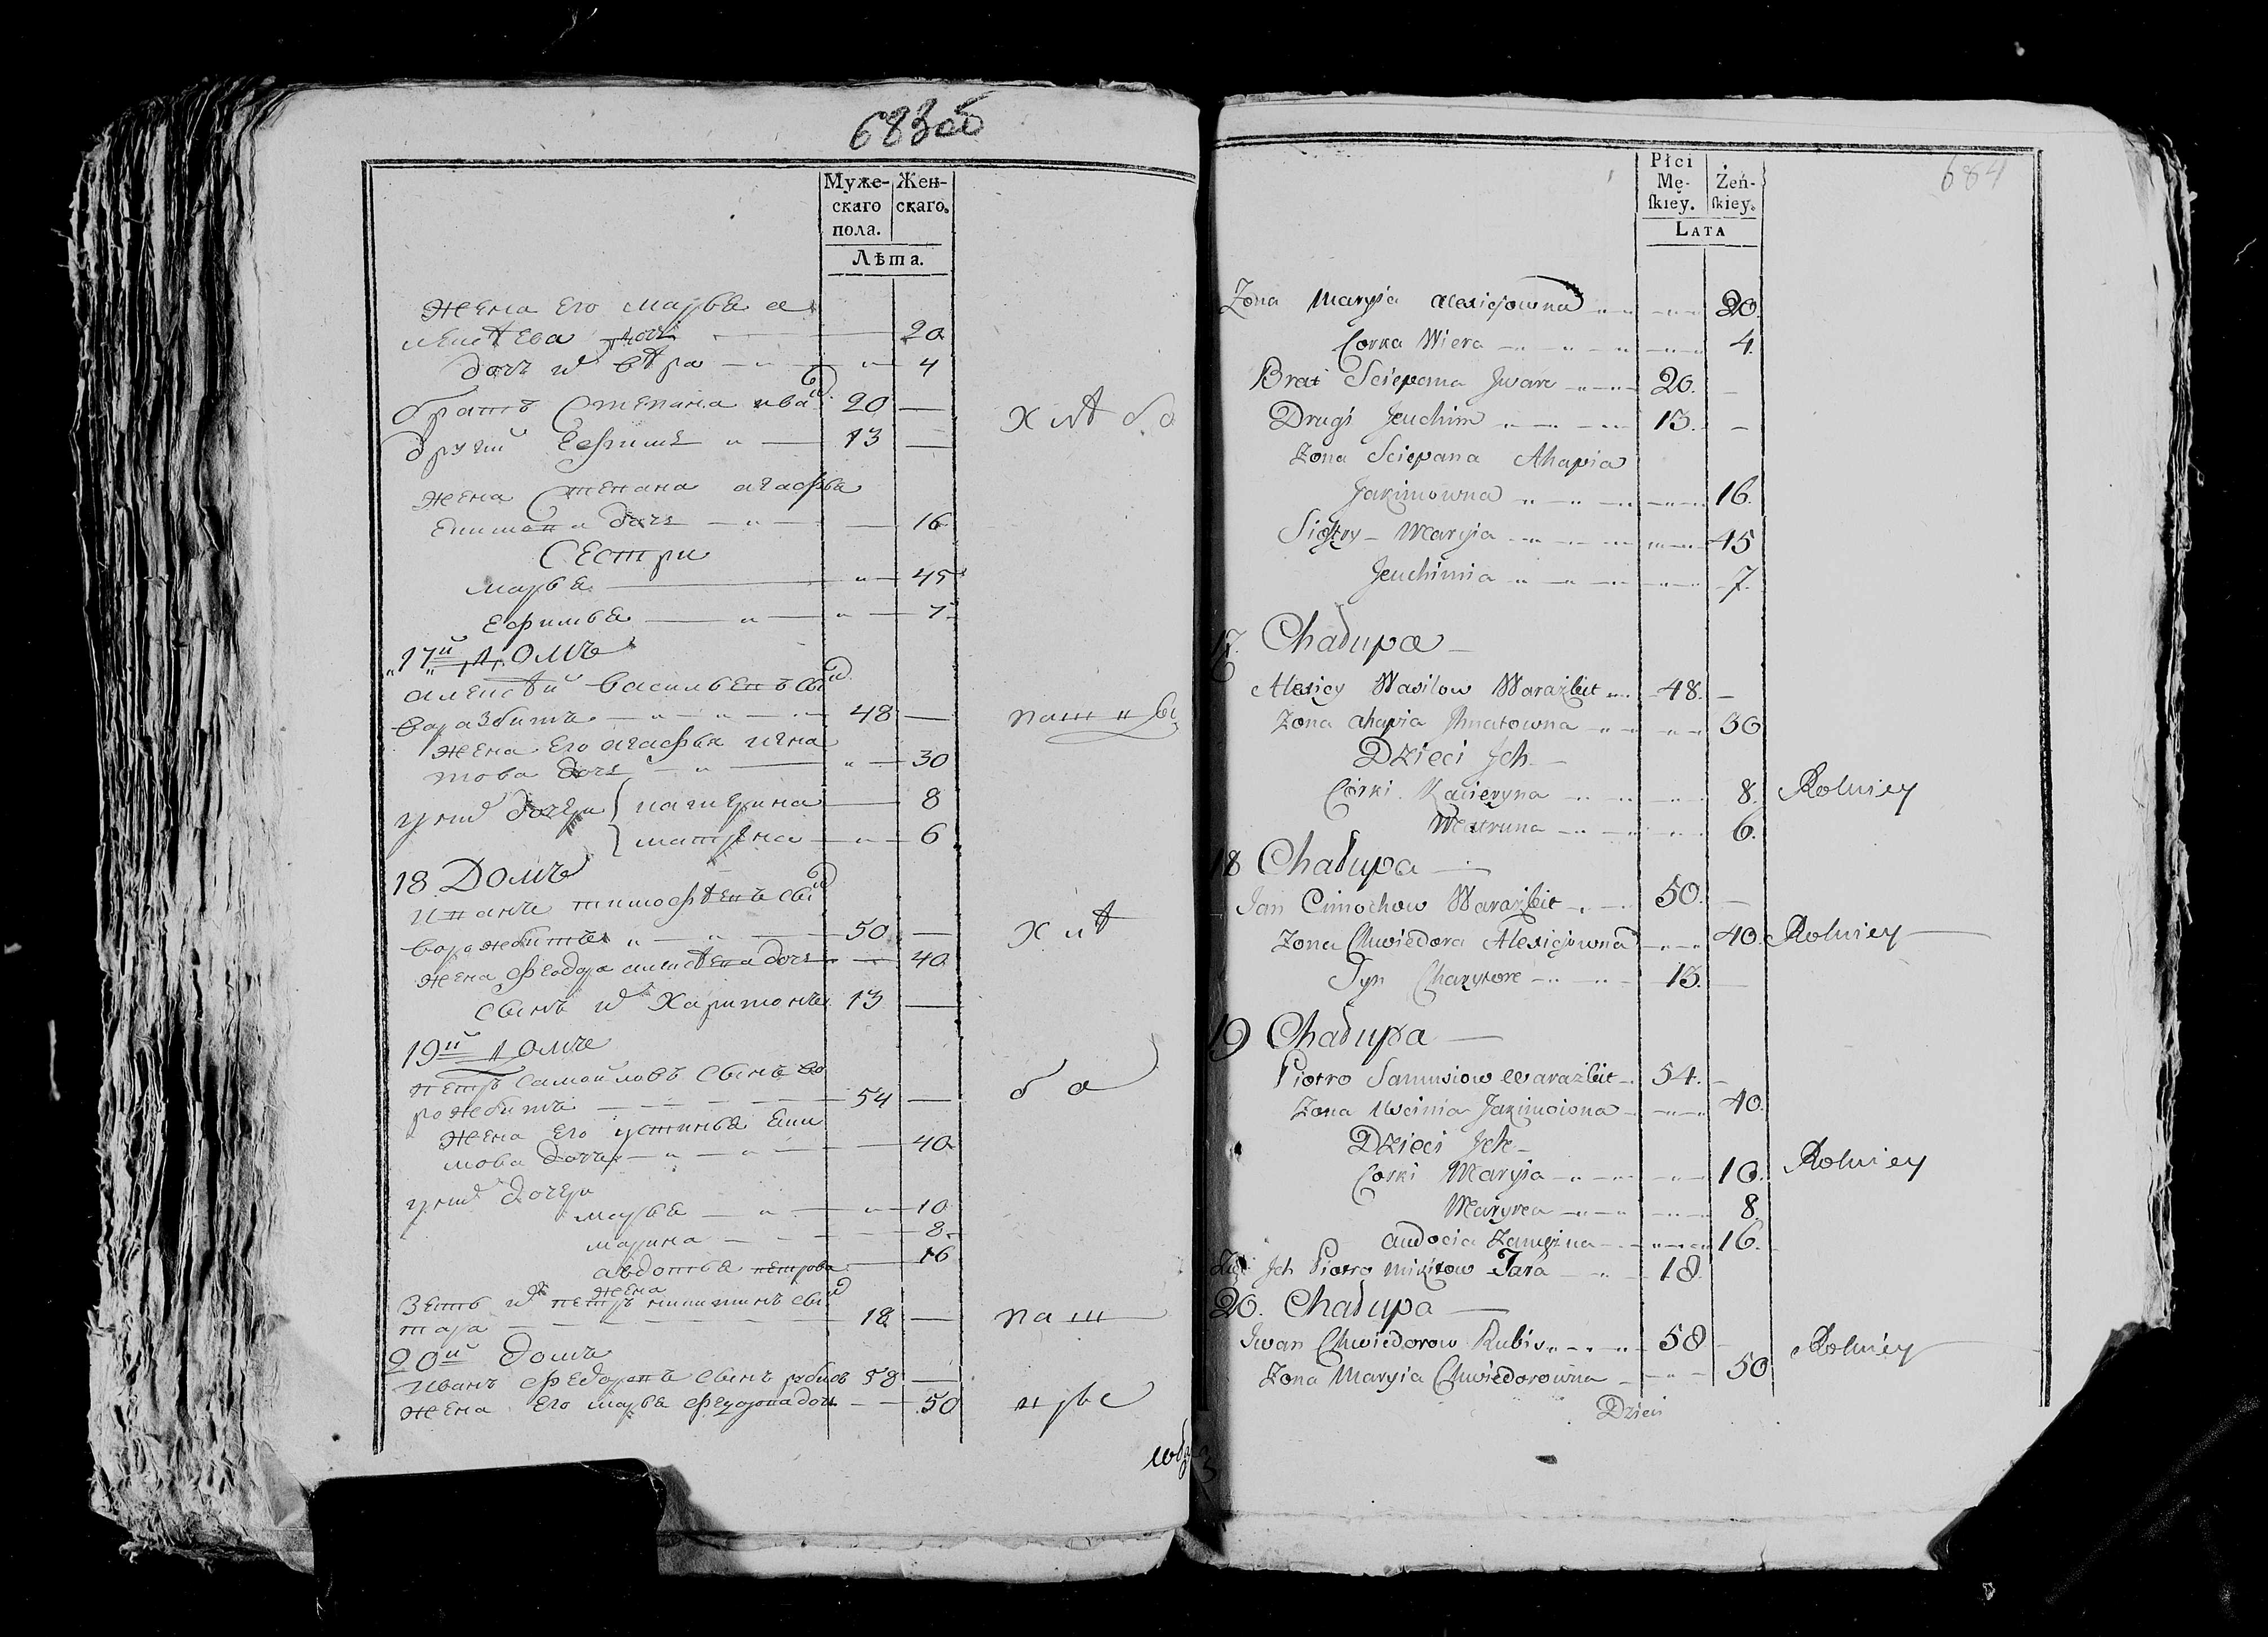 683об
Муже- Жен-
скаго скаго.
пола.
Лѣта.
жена его марья а
лексѣева дочь 20
дочь их вѣра 4
братъ Степана ива 20
другий Ефимъ 13
жена Степана агафья
дочь 16
Сестри
марья 45
Ефимья 7
17й домъ
алексѣй васильевъ сы
варазбитъ 48
жена его агафья игна
това дочь 30
у них дочери катерина 8
матрена 6
18 Домъ
иванъ тимофѣевъ сы
ворожбитъ 50
жена феодора алексѣева дочь 40
сынъ их Харитонъ 13
19й домъ
петръ самойловъ сынъ во
рожбитъ 54
жена его устинья
мова дочь 40
у них дочери
марья 10
марина 8
авдотья петрова 16
жена
зеть их петръ никитинъ сы
тара 18
20й домъ
иванъ федоровъ сынъ 58
жена его марья федорова дочь 50
хлѣбо
паш
хлѣ
ба
паш
684
Płci
Mę- Żeń-
skiey. skiey.
LATA
Żona Maryia Alexiejowna 20.
Corka Wiera 4.
Brat Sciepana Jwan 20.
Drugi Jeuchim 13.
Żona Sciepana Ahapia
Jakimowna 16.
Siostry Maryia 45
Jeuchimia 7.
17. Chałupa
Alexiey Wasilow Warażbit 48.
Żona Ahapia Jhnatowna 30
Dzieci Jch
Corki Kacieryna 8. Rolniey
Matruna 6.
18 Chałupa
Jan Cimochow Warażbit 50.
Żona Chwiedora Alexiejowna 40. Rolniey
Syn Charyton 13.
19 Chałupa
Piotro Samusiow Warażbit 54.
Żona Uscinia Jakimowna 40.
Dzieci Jch
Corki Maryia 10. Rolniey
Maryna 8.
Audocia Zamężna 16.
Jch Piotro Mikitow Tara 18
20. Chałupa
Jwan Chwiedorow Rubis 58 Rolniey
Żona Maryia Chwiedorowna 50
Dzieci